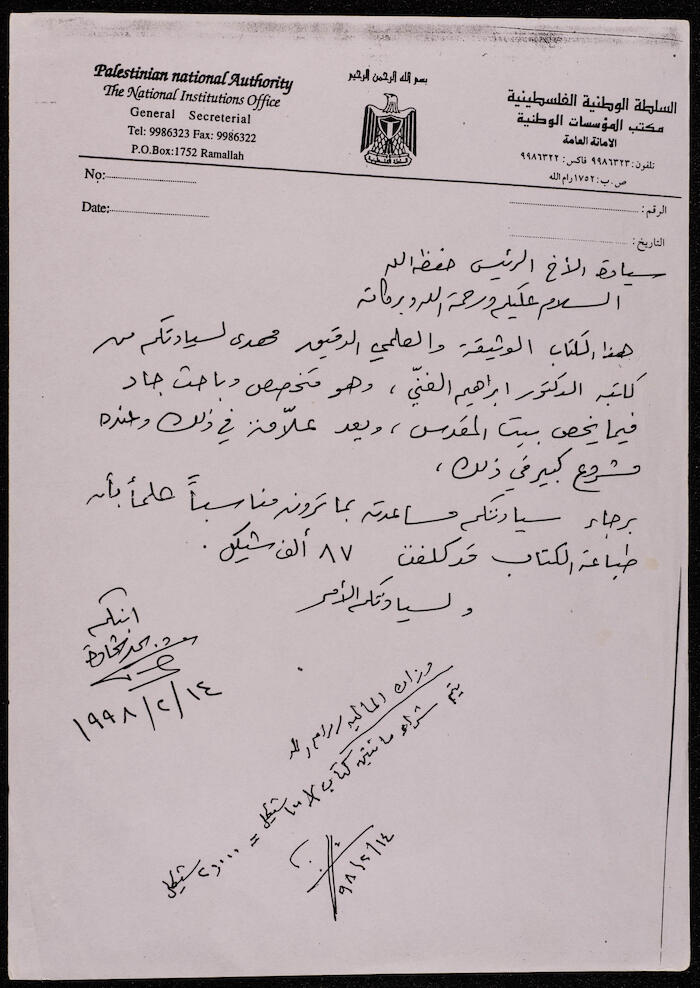 Palestinian national Authority
The National Institutions Office
General Secreterial
Tel: 9986323 Fax: 9986322
P.O.Box:1752 Ramallah
بسم الله الرحمن الرحيم
السلطة الوطنية الفلسطينية
مكتب المؤسسات الوطنية
الامانة العامة
تلفون: ٩٩٨٦٣٢٣ فاكس: ٩٩٨٦٣٢٢
ص.ب: ١٧٥٢ رام الله
No:
Date:
الرقم:
التاريخ:
سيادة الأخ الرئيس حفظه الله
السلام عليكم ورحمة الله وبركاته
هذا الكتاب الوثيقة والعلمي الدقيق مهدى لسيادتكم من
كاتبه الدكتور ابراهيم الفنّي، وهو متخصص وباحث جاد
فيما يخص بيت المقدس، ويعد علّامة في ذلك وعنده
مشروع كبير في ذلك،
برجاء سيادتكم مساعدته بما ترونه مناسباً علماً بأن
طباعة الكتاب قد كلفت ٨٧ ألف شيكل.
ولسيادتكم الأمر
ابنكم
١٩٩٨/٢/١٤
وزارة المالية / رام الله
يتم شراء مائتين كتاب × ١٠٠ شيكل = ٢٠٠٠٠ شيكل
٩٨/٢/١٤